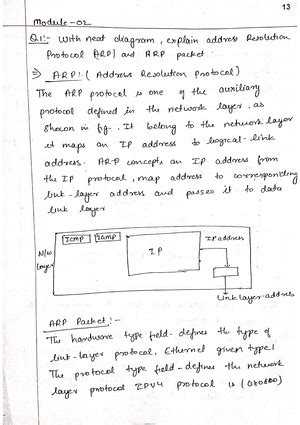 13
Module-02
Q1:- With neat diagram, explain address Resolution
Protocol (ARP) and ARP packet.
⇒ ARP: (Address Resolution protocol)
The ARP protocol is one of the auxiliary
protocol defined in the network layer, as
shown in fig. It belong to the network layer
it maps an IP address to logical-link
address. ARP concepts an IP address from
the IP protocol, map address to corresponding
link-layer address and passes it to data
link layer
N/w Layer
ICMP IGMP IP IP address
Link layer address
ARP Packet:-
The hardware type field- defines the type of
link-layer protocol, Ethernet given type 1
The protocol type field - defines the network
layer protocol IPV4 protocol is (0x0800)